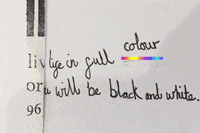 live in full colour
or u will be black and white.
96